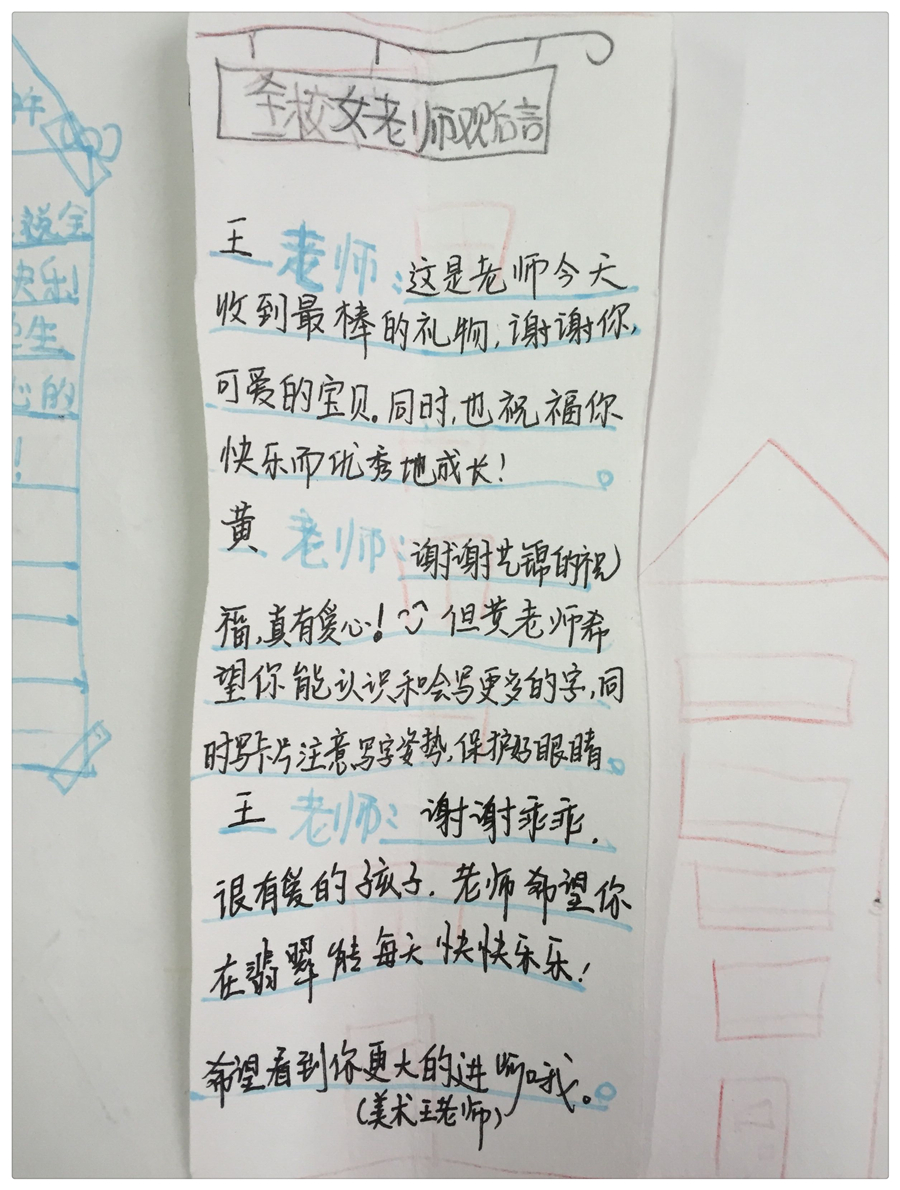 全校女老师观后言
王老师:这是老师今天
收到最棒的礼物,谢谢你,
可爱的宝贝。同时,也祝福你
快乐而优秀地成长!。
黄老师:谢谢艺锦的祝
福,真有爱心!但黄老师希
望你能认识和会写更多的字,同
时写卡片注意写字姿势,保护好眼睛。
王老师:谢谢乖乖.
很有爱的孩子.老师希望你
在翡翠能每天快快乐乐!
希望看到你更大的进步哦。
(美术王老师)
说全
快乐!
生
心的
!